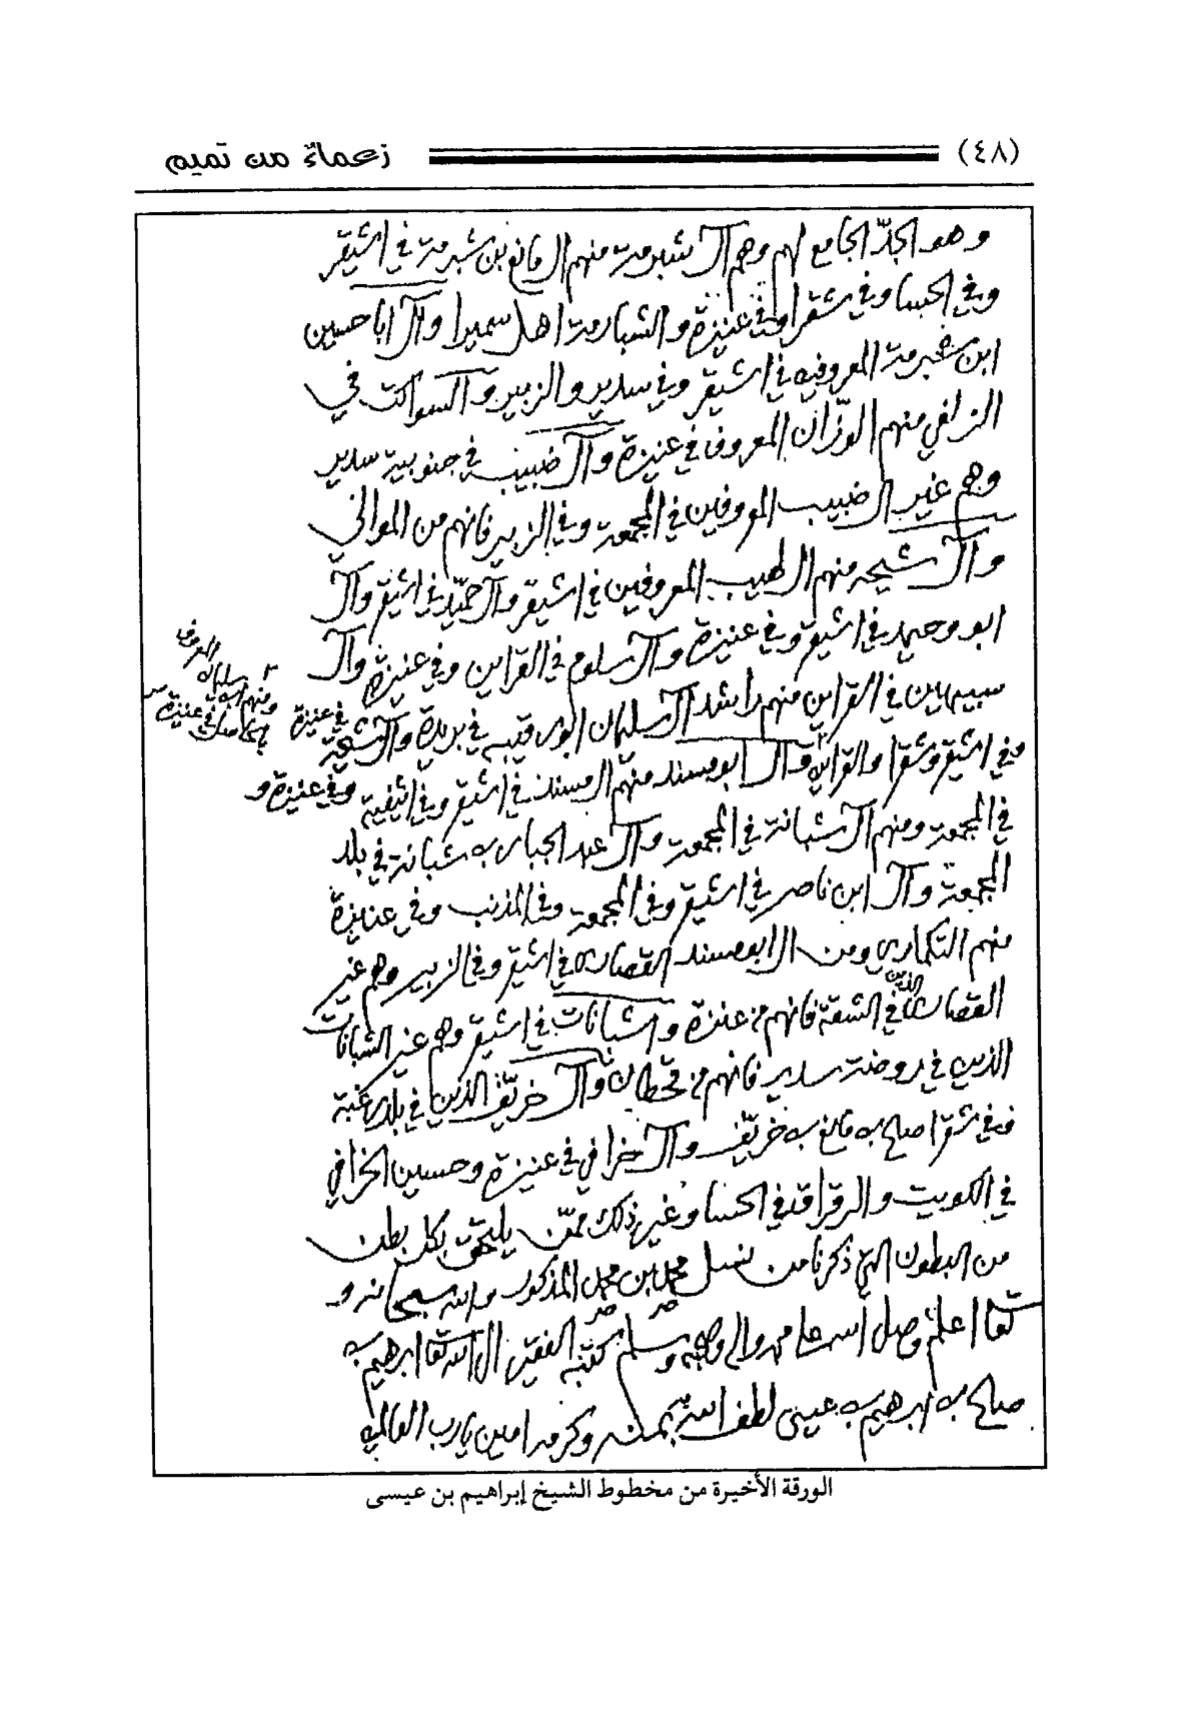 (٤٨) زعماءٌ من تميم
وهو الجدّ الجامع لهم وهم آل شبرمة منهم آل مانع بن شبرمة في اشيقر
وفي الحسا وفي شقرا وفي عنيزة والشبارمة اهل سميرا وآل ابا حسين
ابن شبرمة المعروفين في اشيقر وفي سدير والزبير وآل سواكت في
الزلفي منهم الوزّان المعروف في عنيزة وآل ضبيب في جنوبية سدير
وهم غير آل ضبيب المعروفين في المجمعة وفي الزبير فانهم من الموالي
وآل شيحه منهم آل طبيب المعروفين في اشيقر وآل حميّد في اشيقر وآل
ابو وحيمد في اشيقر وفي عنيزة وآل سلوم في القراين وفي عنيزة وآل
سبيهين في القراين منهم راشد آل سليمان ابو رقيبه في بريدة وآل في عنيزة
وفي اشيقر وشقرا والقراين وآل ابو مسند منهم آل مسند في اشيقر وفي اثيفية وفي عنيزة و
في المجمعة ومنهم آل شبانة في المجمعة وآل عبد الجبار بن شبانة في بلد
المجمعة وآل ابن ناصر في اشيقر وفي المجمعة وفي المذنب وفي عنيزة
منهم التكماري ومن آل ابو مسند القصارى في اشيقر وفي الزبير وهم غير
القصارى الذين في الشقة فانهم من عنزة والشبانات في اشيقر وهم غير الشبانات
الذين في روضة سدير فانهم من قحطان وآل خريّف الذين في بلد رغبة
وفي شقرا صالح بن مانع بن خريّف وآل خرافي في عنيزة وحسين الخرافي
في الكويت والرقراقة في الحسا وغير ذلك ممّن يلتحق بكل بطن
من البطون التي ذكرنا من نسل محمد بن محمد المذكور والله سبحانه و
تعا اعلم وصلى الله على محمد وآله وصحبه وسلم كتبه الفقير الى الله تعا ابرهيم بن
صالح بن ابرهيم بن عيسى لطف الله به بمنه وكرمه امين يا رب العالمين
ومنهم ابن سليمان المعروف
في عنيزة
الورقة الأخيرة من مخطوط الشيخ إبراهيم بن عيسى